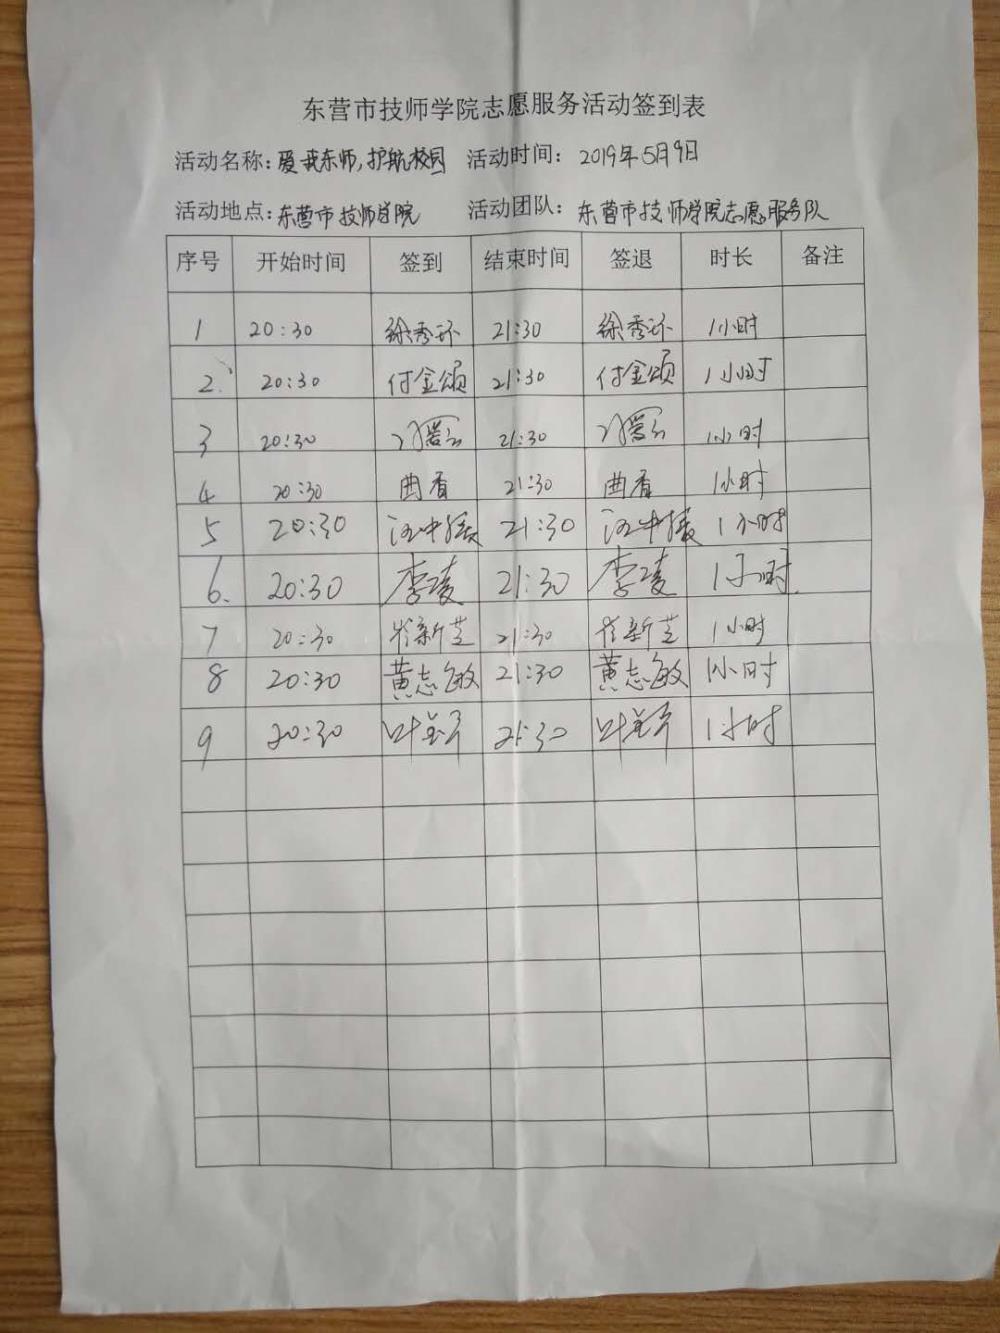 东营市技师学院志愿服务活动签到表
活动名称：爱我东师，护航校园 活动时间：2019年5月9日
活动地点：东营市技师学院 活动团队：东营市技师学院志愿服务队
序号 开始时间 签到 结束时间 签退 时长 备注
1 20:30 徐秀环 21:30 徐秀环 1小时
2. 20:30 付金颂 21:30 付金颂 1小时
3 20:30 21:30 1小时
4 20:30 曲香 21:30 曲香 1小时
5 20:30 21:30 1小时
6. 20:30 李凌 21:30 李凌 1小时
7 20:30 崔新芝 21:30 崔新芝 1小时
8 20:30 黄志敏 21:30 黄志敏 1小时
9 20:30 21:30 1小时